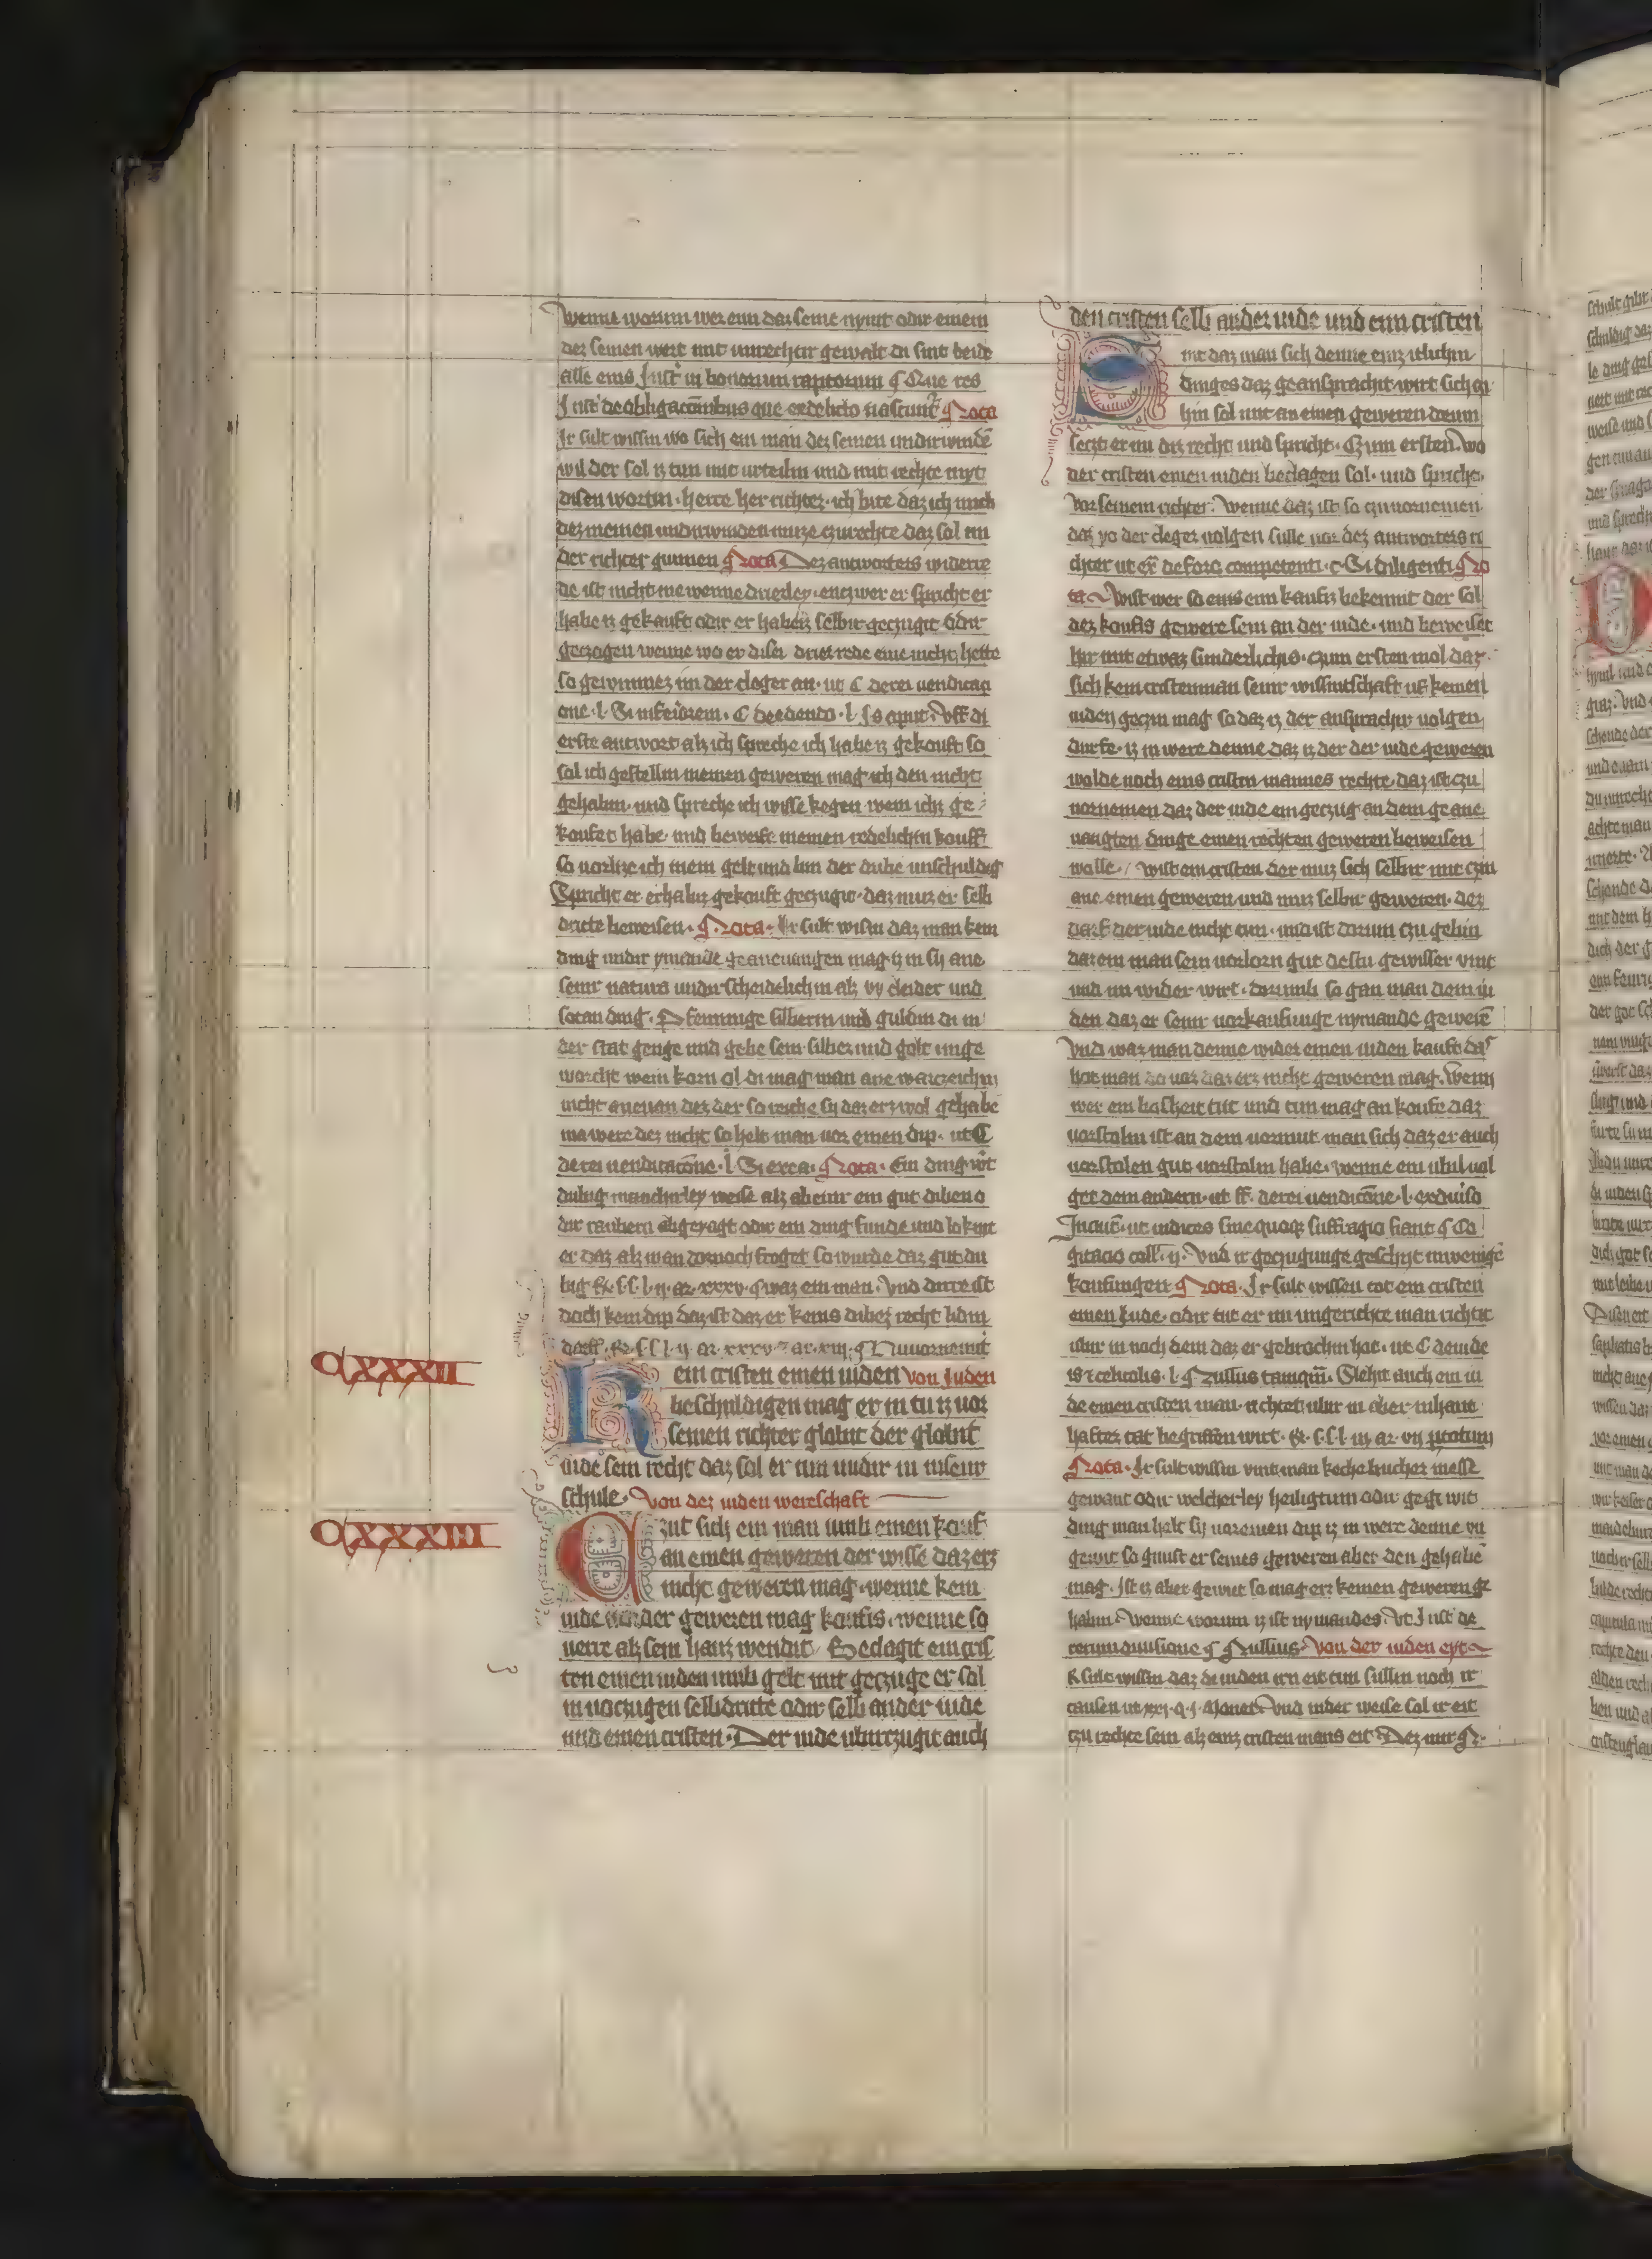 wenne worum wer enn daz seine nymt odir einem
dez seinen wert mit unrechtir gewalt di sint beide
alle eins Inst in bonorum raptorum ¶ Que res
Inst de obligacionibus que ex delicto nascunt ¶ Nota
Ir sult wissin wo sich ein man dez seinen undirwinde
wil der sol iz tun mit urteiln und mit rechte myt
disen wortin · herre her richter · ich bite daz ich mich
dez meinen undirwinden muze czu rechte daz sol im
der richter gunnen ¶ Nota Dez antworters widerre
de ist nicht me wenne drierley · entzwer er spricht er
habe iz gekauft odir er habe iz selbir geczugit odir
geczogen wenne wo er diser drier rede eine nicht hette
so gewinnez im der cleger an · ut C de rei vendicaci
one · l · Si inferiorem · C de edendo · l · Is aput · Uff di
erste antwort alz ich spreche ich habe iz gekouft so
sal ich gestellin meinen geweren mag ich den nicht
gehabin · und spreche ich wisse kegen wem ichz ge
koufet habe · und beweise meinen redelichin kouff
so vorlize ich mein gelt und bin der dube unschuldig
Spricht er er habiz gekouft geczugit · daz muz er selb
dritte beweisen · ¶ Nota · Ir sult wissin daz man kein
ding undir ymande geanevangen mag iz in sy ane
seinir natura undirscheidelich in alz vy cleider und
sotan ding · Pfennige silberin und guldin di in
der stat genge und gebe sein silber und golt unge
worcht wein korn ol di mag man ane warczeichin
nicht anevan dez der so reiche sy daz erz wol gehabe
ma were dez nicht so helt man vor einen dip · ut C
de rei vendicacione · l · Si exca · ¶ Nota · Ein ding wirt
dubig manchirley weise alz abeinir ein gut diben o
dir raubern abgeyagt odir ein ding funde und lokent
er daz alz man dornoch froget so wurde daz gut du
big R · l · l · ij · ar · xxxv · ¶ waz ein man · Und dirre ist
doch kein dip daz ist daz er keins dibez recht lidin
darff · R · l · l · ij · ar · xxxv · 7 ar · xiij · ¶ Nu vornemit
CXXXII
R ein cristen einen iuden von Juden
beschuldigen mag er in tu iz vor
seinen richter globit der globit
iude sein recht daz sol er tun undir in in seinir
schule · Von dez iuden wereschaft
CXXXIII
Czut sich ein man umb einen kouf
an einen geweren der wisse daz erz
nicht geweren mag · wenne kein
iude der geweren mag koufis · wenne so
verre alz sein hauz wendit · Beclagit ein cris
ten einen iuden umb gelt mit geczuge er sal
in vorczugen selbdritte odir selb ander iude
und einen cristen · Der iude ubirczugit auch
den cristen selb ander iude und enn cristen
mt daz man sich denne einz itlichin
dinges daz geansprachit wirt sich czi
hin sol mit an einen geweren dorum
seczt er im diz recht und spricht · Czum ersten · wo
der cristen einen iuden beclagen sol · und spricht ·
Vor seinem richter · Wenne daz ist so czu vornemen
daz yo der cleger volgen sulle vor dez antworters ri
chter ut ex de foro competenti · c · Si diligenti ¶ No
ta · Wist wer so eins enn kaufis bekennit der sol
dez koufis gewere sein an der iude · und beweiset
hir mit etwaz sunderlichis · czum ersten mol daz
sich kein cristenman seinir wissintschaft uf keinen
iuden geczin mag so daz iz der ansprachir volgen
durfe · iz in were denne daz iz der der iude geweren
wolde noch eins cristen mannes rechte · daz ist czu
vornemen daz der iude ein geczug an dem geane
vangten dinge einen rechten geweren beweisen
wolle · / wist ein cristen der muz sich selbir mit czin
ane einen geweren und muz selbir geweren · dez
darf der iude nicht tun · und ist dorum czu gebin
dar ein man sein vorlorn gut destir gewisser vint
und im wider wirt · dorumb so gan man dem iu
den daz er seinir vorkaufunge nymande geweren
Und waz man denne wider einen iuden kauft da
hot man do vor daz erz nicht geweren mag · Wenn
wer ein bosheit tut und tun mag an koufe daz
vorstoln ist an dem vormut man sich daz er auch
vorstolen gut vorstoln habe · wenne ein ubil vol
get dem andern · ut ff · de rei vendicione · l · ex diviso
In aut · ut iudices sine quoqz suffragio fiant ¶ Co
gitacio coll · ij · Und ir geczugunge geschiet in wenige
koufungen ¶ Nota · Ir sult wissen tot ein cristen
einen Jude · odir tut er im ungerichte man richtit
ubir in noch dem daz er gebrochin hot · ut C de iude
is 7 celicolis · l · ¶ Nullus tamquam · Slehit auch ein iu
de einen cristen man · richtet ubir in aber in hant
haftir tat begriffen wirt · R · l · l · iij · ar · vij p totum
¶ Nota · Ir sult wissin vint man keche bucher messe
gewant odir welcherley heiligtum odir gegt wit
ding man helt sy vor einen dip iz in were denne vn
gewit so gnust er seines geweren aber den gehabe
mag · Ist iz aber gewit so mag erz keinen geweren ge
habin · Wenne worum iz ist nymandes · Ut Inst de
rerum divisione ¶ Nullius · Von der iuden eyt
R sult wissin daz di iuden irn eit tun sullin noch ir
causen ut xxj · q · j · Monet · Und inder weise sol ir eit
czu rechte sein alz einz cristen mans eit · Dez nur ¶ 2 ·